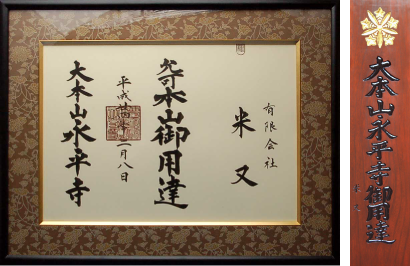 有限会社
米又
允許本山御用達
平成廿年二月八日
大本山永平寺
大本山永平寺御用達